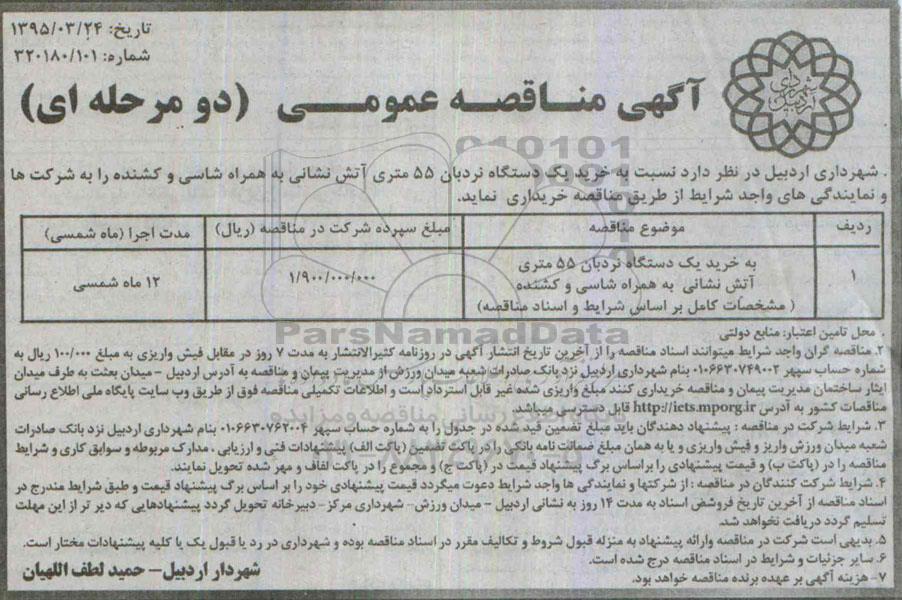 تاریخ: ۱۳۹۵/۰۳/۲۴
شماره: ۳۲۰۱۸۰/۱۰۱
شهرداری اردبیل
آگهی مناقصه عمومی (دو مرحله ای)
. شهرداری اردبیل در نظر دارد نسبت به خرید یک دستگاه نردبان ۵۵ متری آتش نشانی به همراه شاسی و کشنده را به شرکت ها
و نمایندگی های واجد شرایط از طریق مناقصه خریداری نماید.
ردیف موضوع مناقصه مبلغ سپرده شرکت در مناقصه (ریال) مدت اجرا (ماه شمسی)
به خرید یک دستگاه نردبان ۵۵ متری
۱ آتش نشانی به همراه شاسی و کشنده ۱/۹۰۰/۰۰۰/۰۰۰ ۱۲ ماه شمسی
( مشخصات کامل بر اساس شرایط و اسناد مناقصه)
ParsNamadData
. محل تامین اعتبار: منابع دولتی
۲. مناقصه گران واجد شرایط میتوانند اسناد مناقصه را از آخرین تاریخ انتشار آگهی در روزنامه کثیرالانتشار به مدت ۷ روز در مقابل فیش واریزی به مبلغ ۱۰۰/۰۰۰ ریال به
شماره حساب سپهر ۰۱۰۶۶۳۰۷۴۹۰۰۲ بنام شهرداری اردبیل نزد بانک صادرات شعبه میدان ورزش از مدیریت پیمان و مناقصه به آدرس اردبیل - میدان بعثت به طرف میدان
ایثار ساختمان مدیریت پیمان و مناقصه خریداری کنند مبلغ واریزی شده غیر قابل استرداد است و اطلاعات تکمیلی مناقصه فوق از طریق وب سایت پایگاه ملی اطلاع رسانی
مناقصات کشور به آدرس http://iets.mporg.ir قابل دسترسی میباشد.
۳. شرایط شرکت در مناقصه : پیشنهاد دهندگان باید مبلغ تضمین قید شده در جدول را به شماره حساب سپهر ۰۱۰۶۶۳۰۷۶۲۰۰۴ بنام شهرداری اردبیل نزد بانک صادرات
شعبه میدان ورزش واریز و فیش واریزی و یا به همان مبلغ ضمانت نامه بانکی را در پاکت تضمین (پاکت الف) پیشنهادات فنی و ارزیابی ، مدارک مربوطه و سوابق کاری و شرایط
مناقصه را در (پاکت ب) و قیمت پیشنهادی را براساس برگ پیشنهاد قیمت در (پاکت ج) و مجموع را در پاکت لفاف و مهر شده تحویل نمایند.
۴. شرایط شرکت کنندگان در مناقصه : از شرکتها و نمایندگی ها واجد شرایط دعوت میگردد قیمت پیشنهادی خود را بر اساس برگ پیشنهاد قیمت و طبق شرایط مندرج در
اسناد مناقصه از آخرین تاریخ فروش اسناد به مدت ۱۴ روز به نشانی اردبیل - میدان ورزش- شهرداری مرکز- دبیرخانه تحویل گردد پیشنهادهایی که دیر تر از این مهلت
تسلیم گردد دریافت نخواهد شد.
۵. بدیهی است شرکت در مناقصه وارائه پیشنهاد به منزله قبول شروط و تکالیف مقرر در اسناد مناقصه بوده و شهرداری در رد یا قبول یک یا کلیه پیشنهادات مختار است.
۶. سایر جزئیات و شرایط در اسناد مناقصه درج شده است.
۷- هزینه آگهی بر عهده برنده مناقصه خواهد بود.
شهردار اردبیل – حمید لطف اللهیان